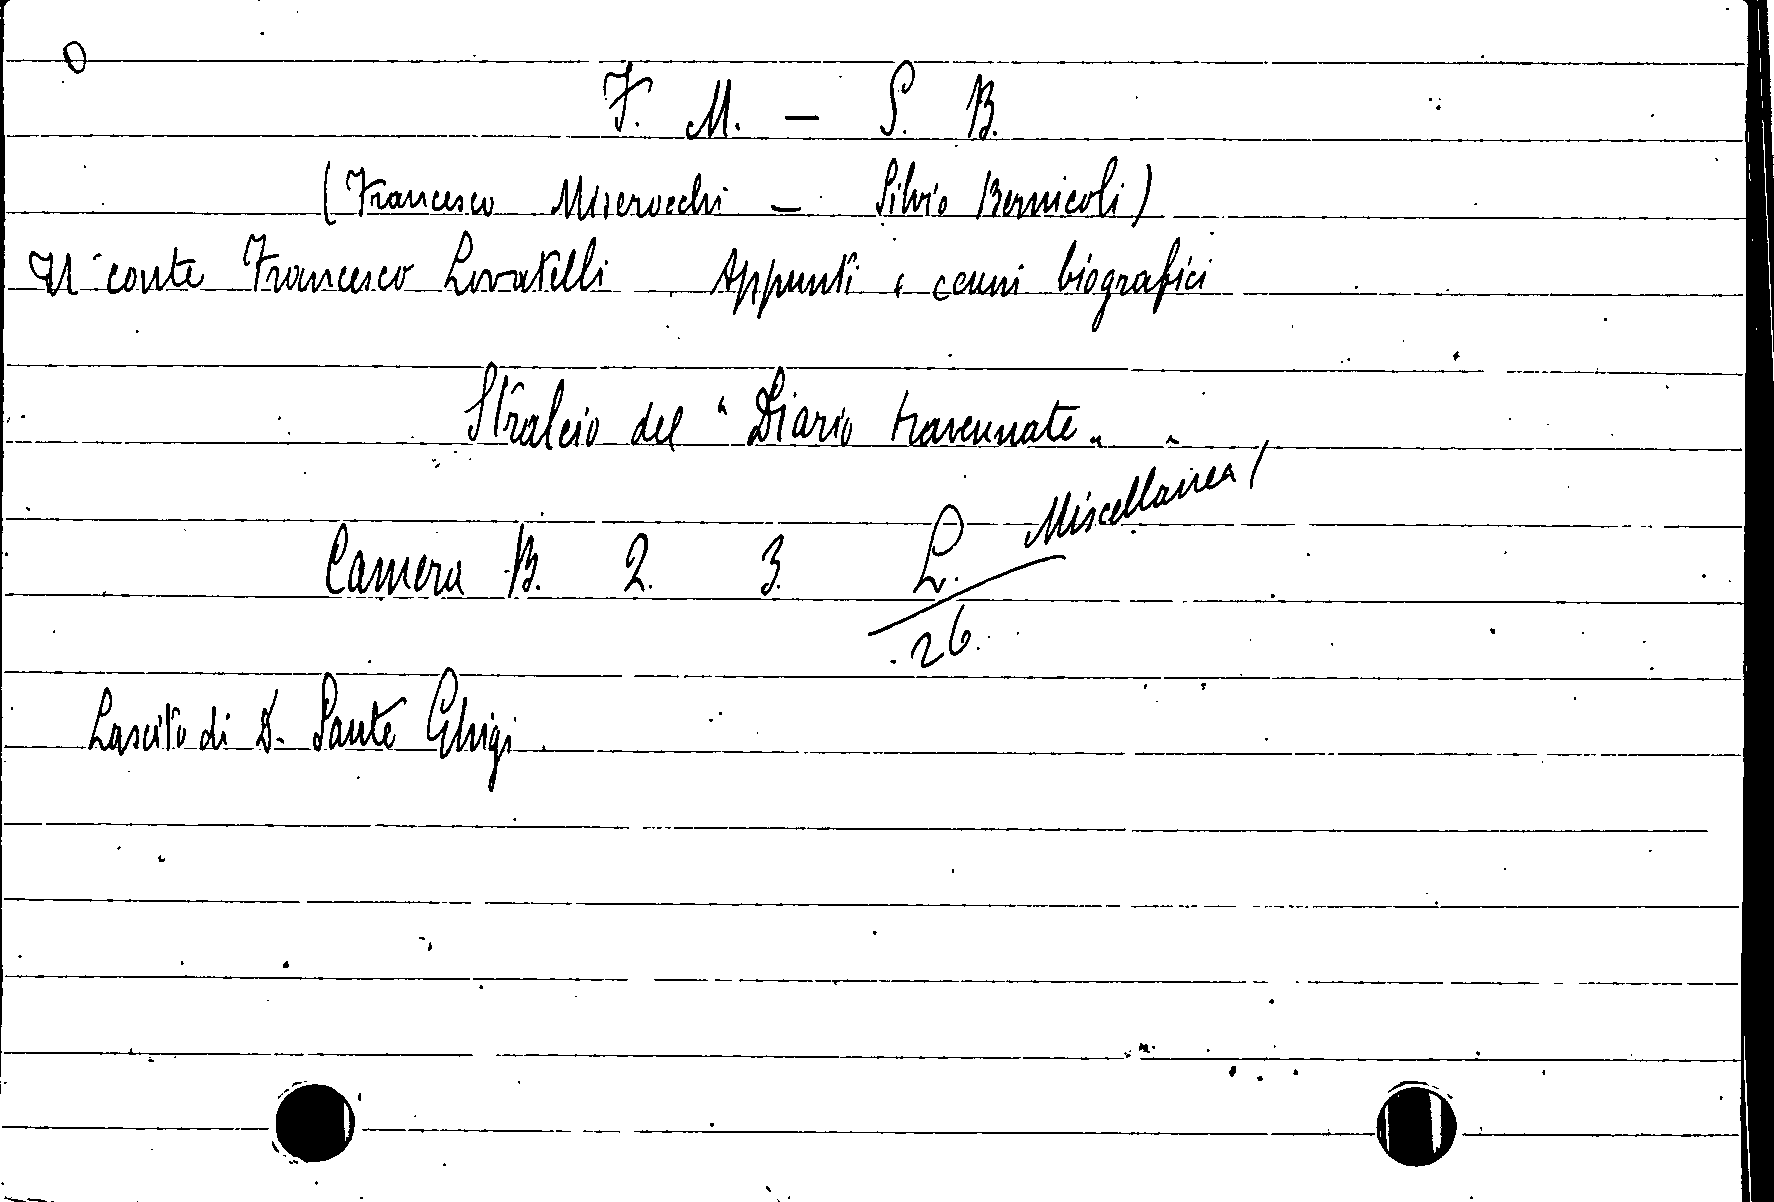 O
F. M. — S. B.
(Francesco Miserocchi — Silvio Bernicoli)
Il conte Francesco Lovatelli. Appunti e cenni biografici
Stralcio del "Diario ravennate"
Miscellanea /
Camera B. 2. 3. L.
26.
Lascito di D. Sante Ghigi